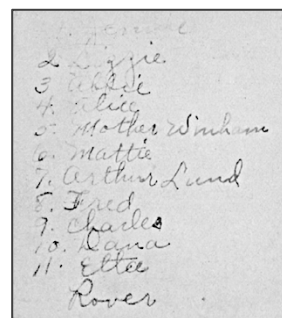 1. Jennie
2. Lizzie
3. Abbie
4. Alice
5. Mother Winham
6. Mattie
7. Arthur Lund
8. Fred
9. Charles
10. Dana
11. Ettee
Rover